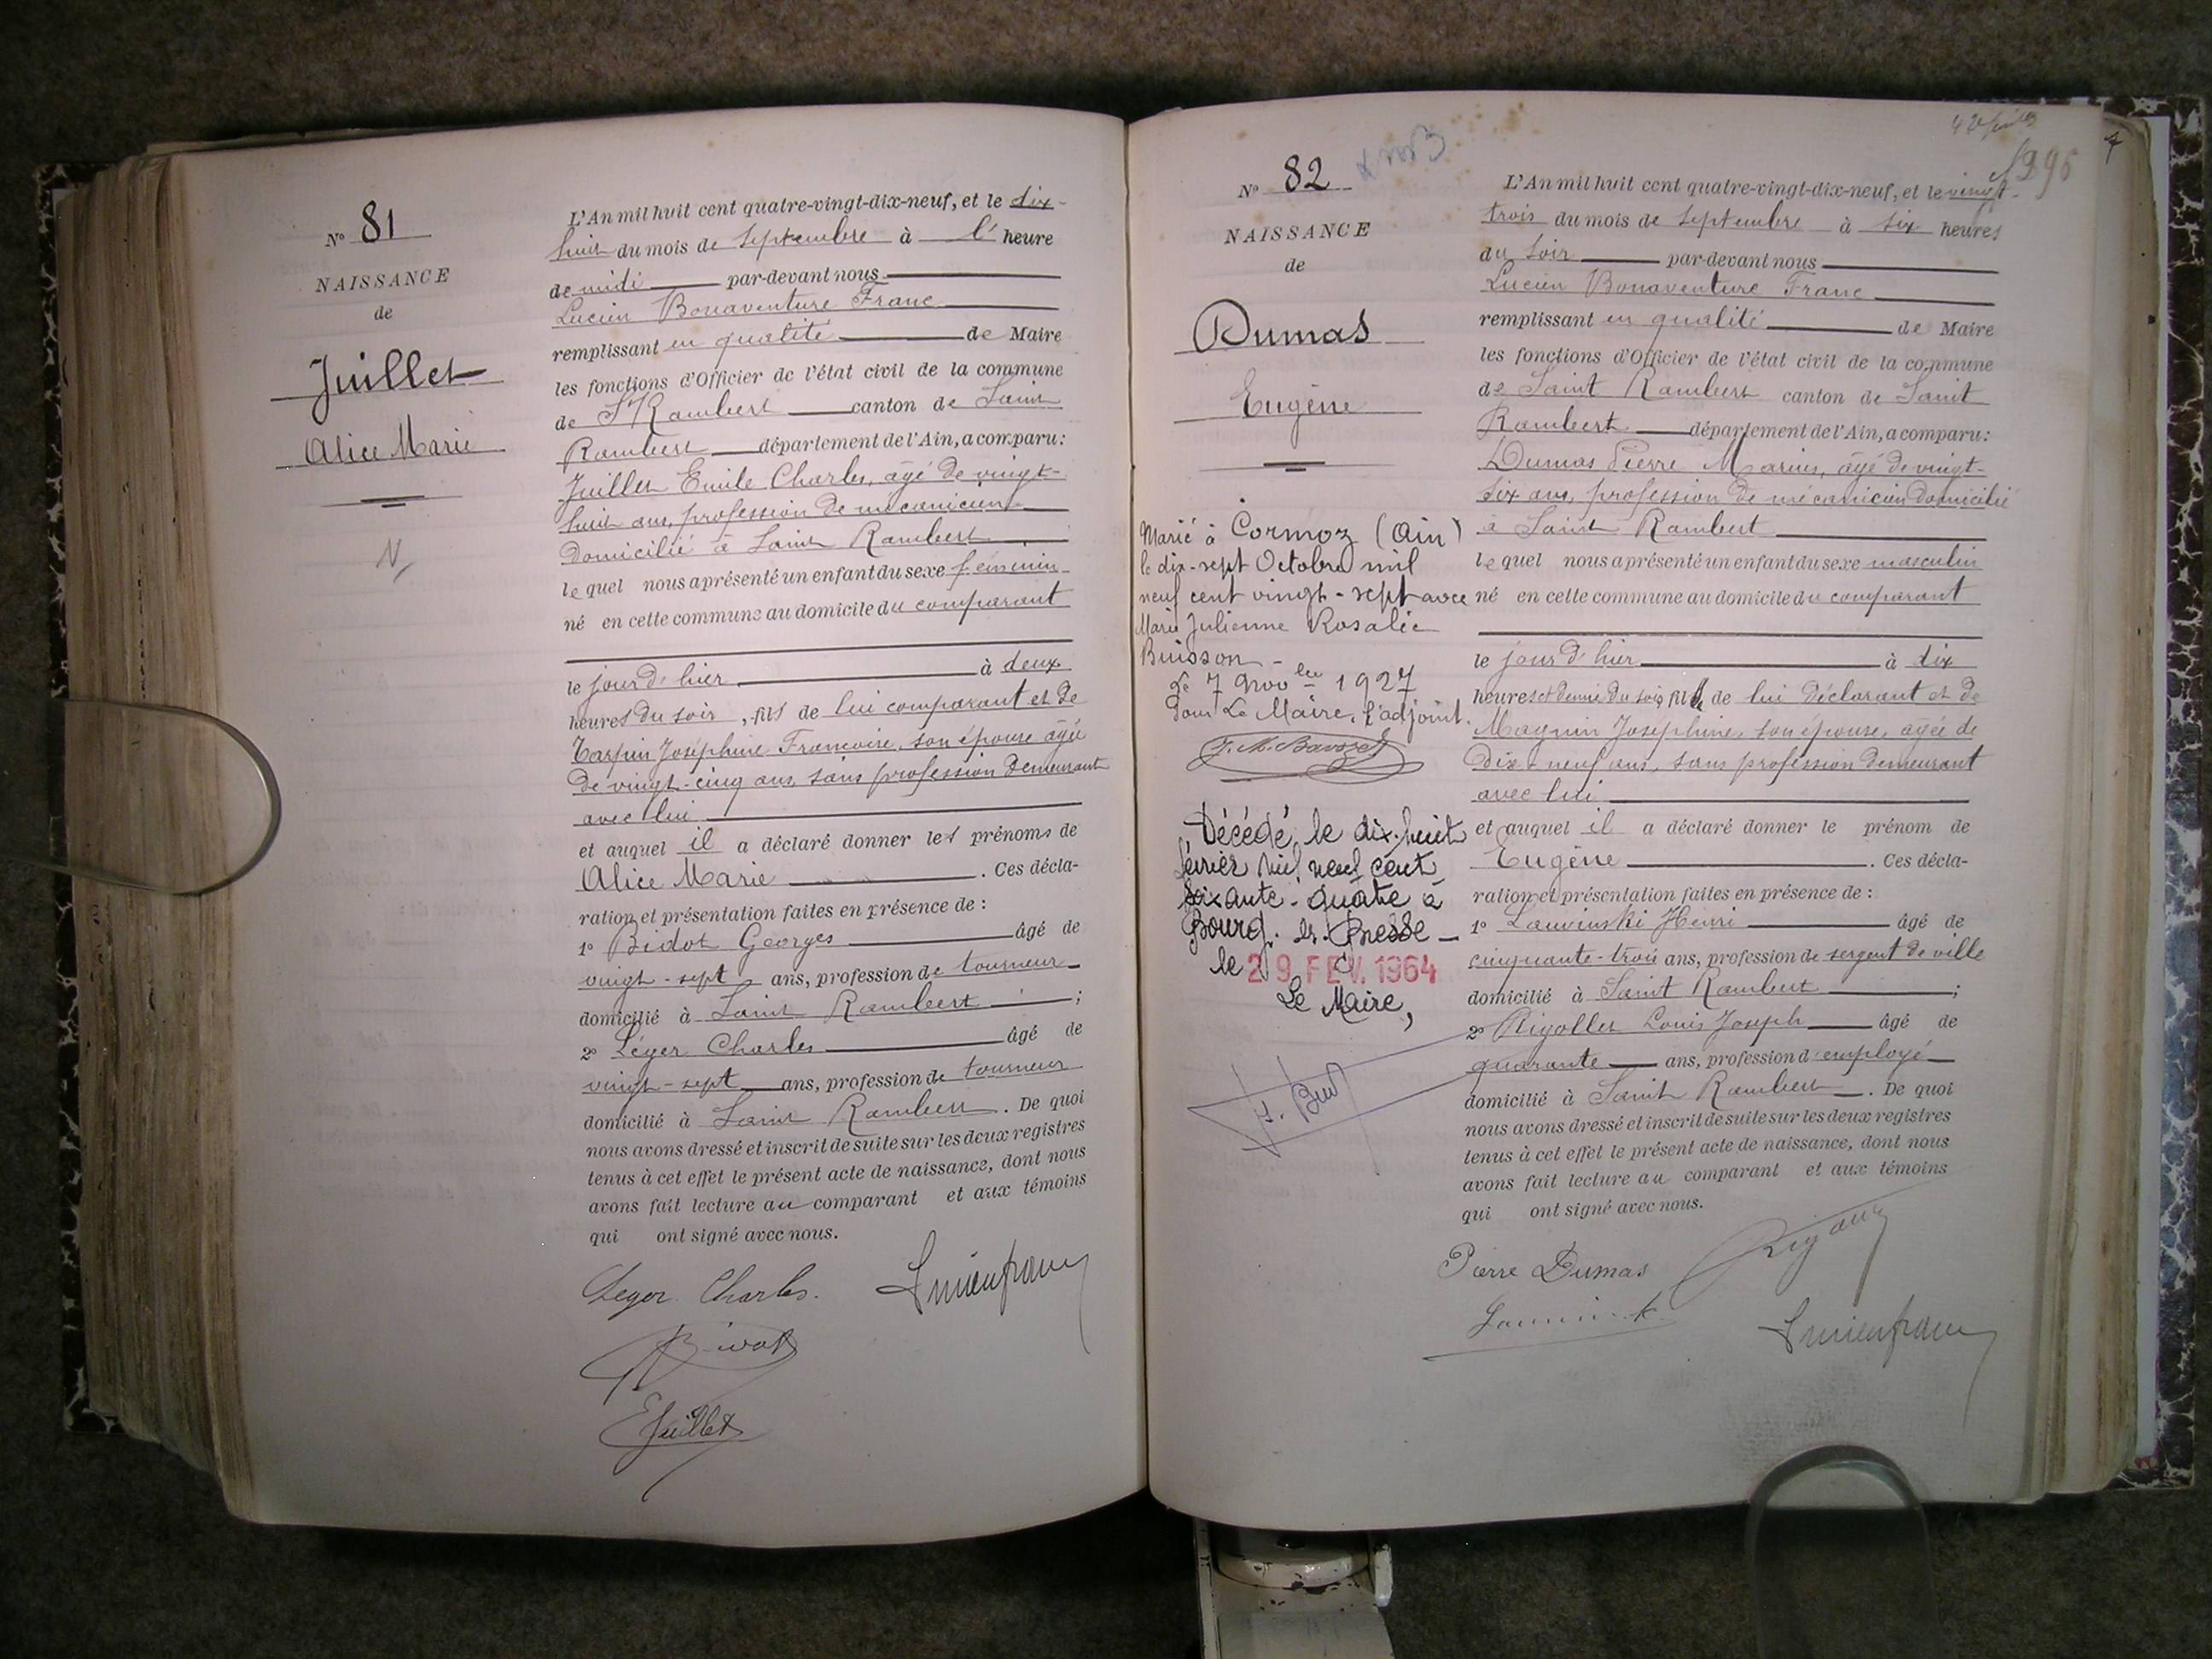 N° 81
NAISSANCE
de
Juillet
Alice Marie
N
L'An mil huit cent quatre-vingt-dix-neuf, et le dix-
huit du mois de Septembre à l' heure
de midi par-devant nous
Lucien Bonaventure Franc
remplissant en qualité de Maire
les fonctions d'Officier de l'état civil de la commune
de St Rambert canton de Saint
Rambert département de l'Ain, a comparu :
Juillet Emile Charles, âgé de vingt-
huit ans, profession de mécanicien
domicilié à Saint Rambert
le quel nous a présenté un enfant du sexe féminin
né en cette commune au domicile du comparant
le jour d'hier à deux
heures du soir, fils de lui comparant et de
Tarpin Joséphine Francoise, son épouse âgée
de vingt-cinq ans, sans profession demeurant
avec lui
et auquel il a déclaré donner les prénoms de
Alice Marie . Ces décla-
ration et présentation faites en présence de :
1° Bidot Georges âgé de
vingt-sept ans, profession de tourneur
domicilié à Saint Rambert ;
2° Léger Charles âgé de
vingt-sept ans, profession de tourneur
domicilié à Saint Rambert . De quoi
nous avons dressé et inscrit de suite sur les deux registres
tenus à cet effet le présent acte de naissance, dont nous
avons fait lecture au comparant et aux témoins
qui ont signé avec nous.
Leger Charles.
E Juillet
N° 82
NAISSANCE
de
Dumas
Eugène
Marié à Cormoz (Ain)
le dix-sept Octobre mil
neuf cent vingt-sept avec
Marie Julienne Rosalie
Buisson -
Le 7 Nov bre 1927
Pour Le Maire, l'adjoint.
Décédé le dix-huit
février mil neuf cent
soixante-quatre à
Bourg-en-Bresse -
le 29 FEV. 1964
Le Maire,
L'An mil huit cent quatre-vingt-dix-neuf, et le vingt-
trois du mois de Septembre à six heures
du soir par-devant nous
Lucien Bonaventure Franc
remplissant en qualité de Maire
les fonctions d'Officier de l'état civil de la commune
de Saint Rambert canton de Saint
Rambert département de l'Ain, a comparu :
Dumas Pierre Marius, âgé de vingt-
six ans, profession de mécanicien domicilié
à Saint Rambert
le quel nous a présenté un enfant du sexe masculin
né en cette commune au domicile du comparant
le jour d'hier à dix
heures et demie du soir fils de lui déclarant et de
Magnin Joséphine, son épouse, agée de
dix-neuf ans, sans profession demeurant
avec lui
et auquel il a déclaré donner le prénom de
Eugène . Ces décla-
ration et présentation faites en présence de :
1° Henri âgé de
cinquante-trois ans, profession de sergent de ville
domicilié à Saint Rambert ;
2° Louis Joseph âgé de
quarante ans, profession d'employé
domicilié à Saint Rambert . De quoi
nous avons dressé et inscrit de suite sur les deux registres
tenus à cet effet le présent acte de naissance, dont nous
avons fait lecture au comparant et aux témoins
qui ont signé avec nous.
Pierre Dumas